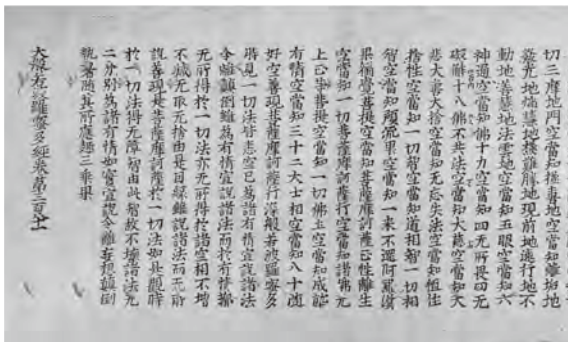 切三摩地門空當知極喜地空當知離垢地
發光地焰慧地極難勝地現前地遠行地不
動地善慧地法雲地空當知五眼空當知六
神通空當知佛十力空當知四无所畏四无
礙解十八佛不共法空當知大慈空當知大
悲大喜大捨空當知无忘失法空當知恒住
捨性空當知一切智空當知道相智一切相
智空當知預流果空當知一來不還阿羅漢
果獨覺菩提空當知菩薩摩訶薩正性離生
空當知一切菩薩摩訶薩行空當知諸佛无
上正等菩提空當知一切佛土空當知成熟
有情空當知三十二大士相空當知八十隨
好空善現菩薩摩訶薩行深般若波羅蜜多
時見一切法皆悉空已為諸有情宣說諸法
令離顛倒雖為有情宣說諸法而於有情都
无所得於一切法亦无所得於諸空相不增
不減无取无捨由是因緣雖說諸法而无所
說善現是菩薩摩訶薩於一切法如是觀時
於一切法得无障智由此智故不壞諸法无
二分別為諸有情如實宣說令離妄想顛倒
執著隨其所應趣三乘果
大般若波羅蜜多經卷第三百